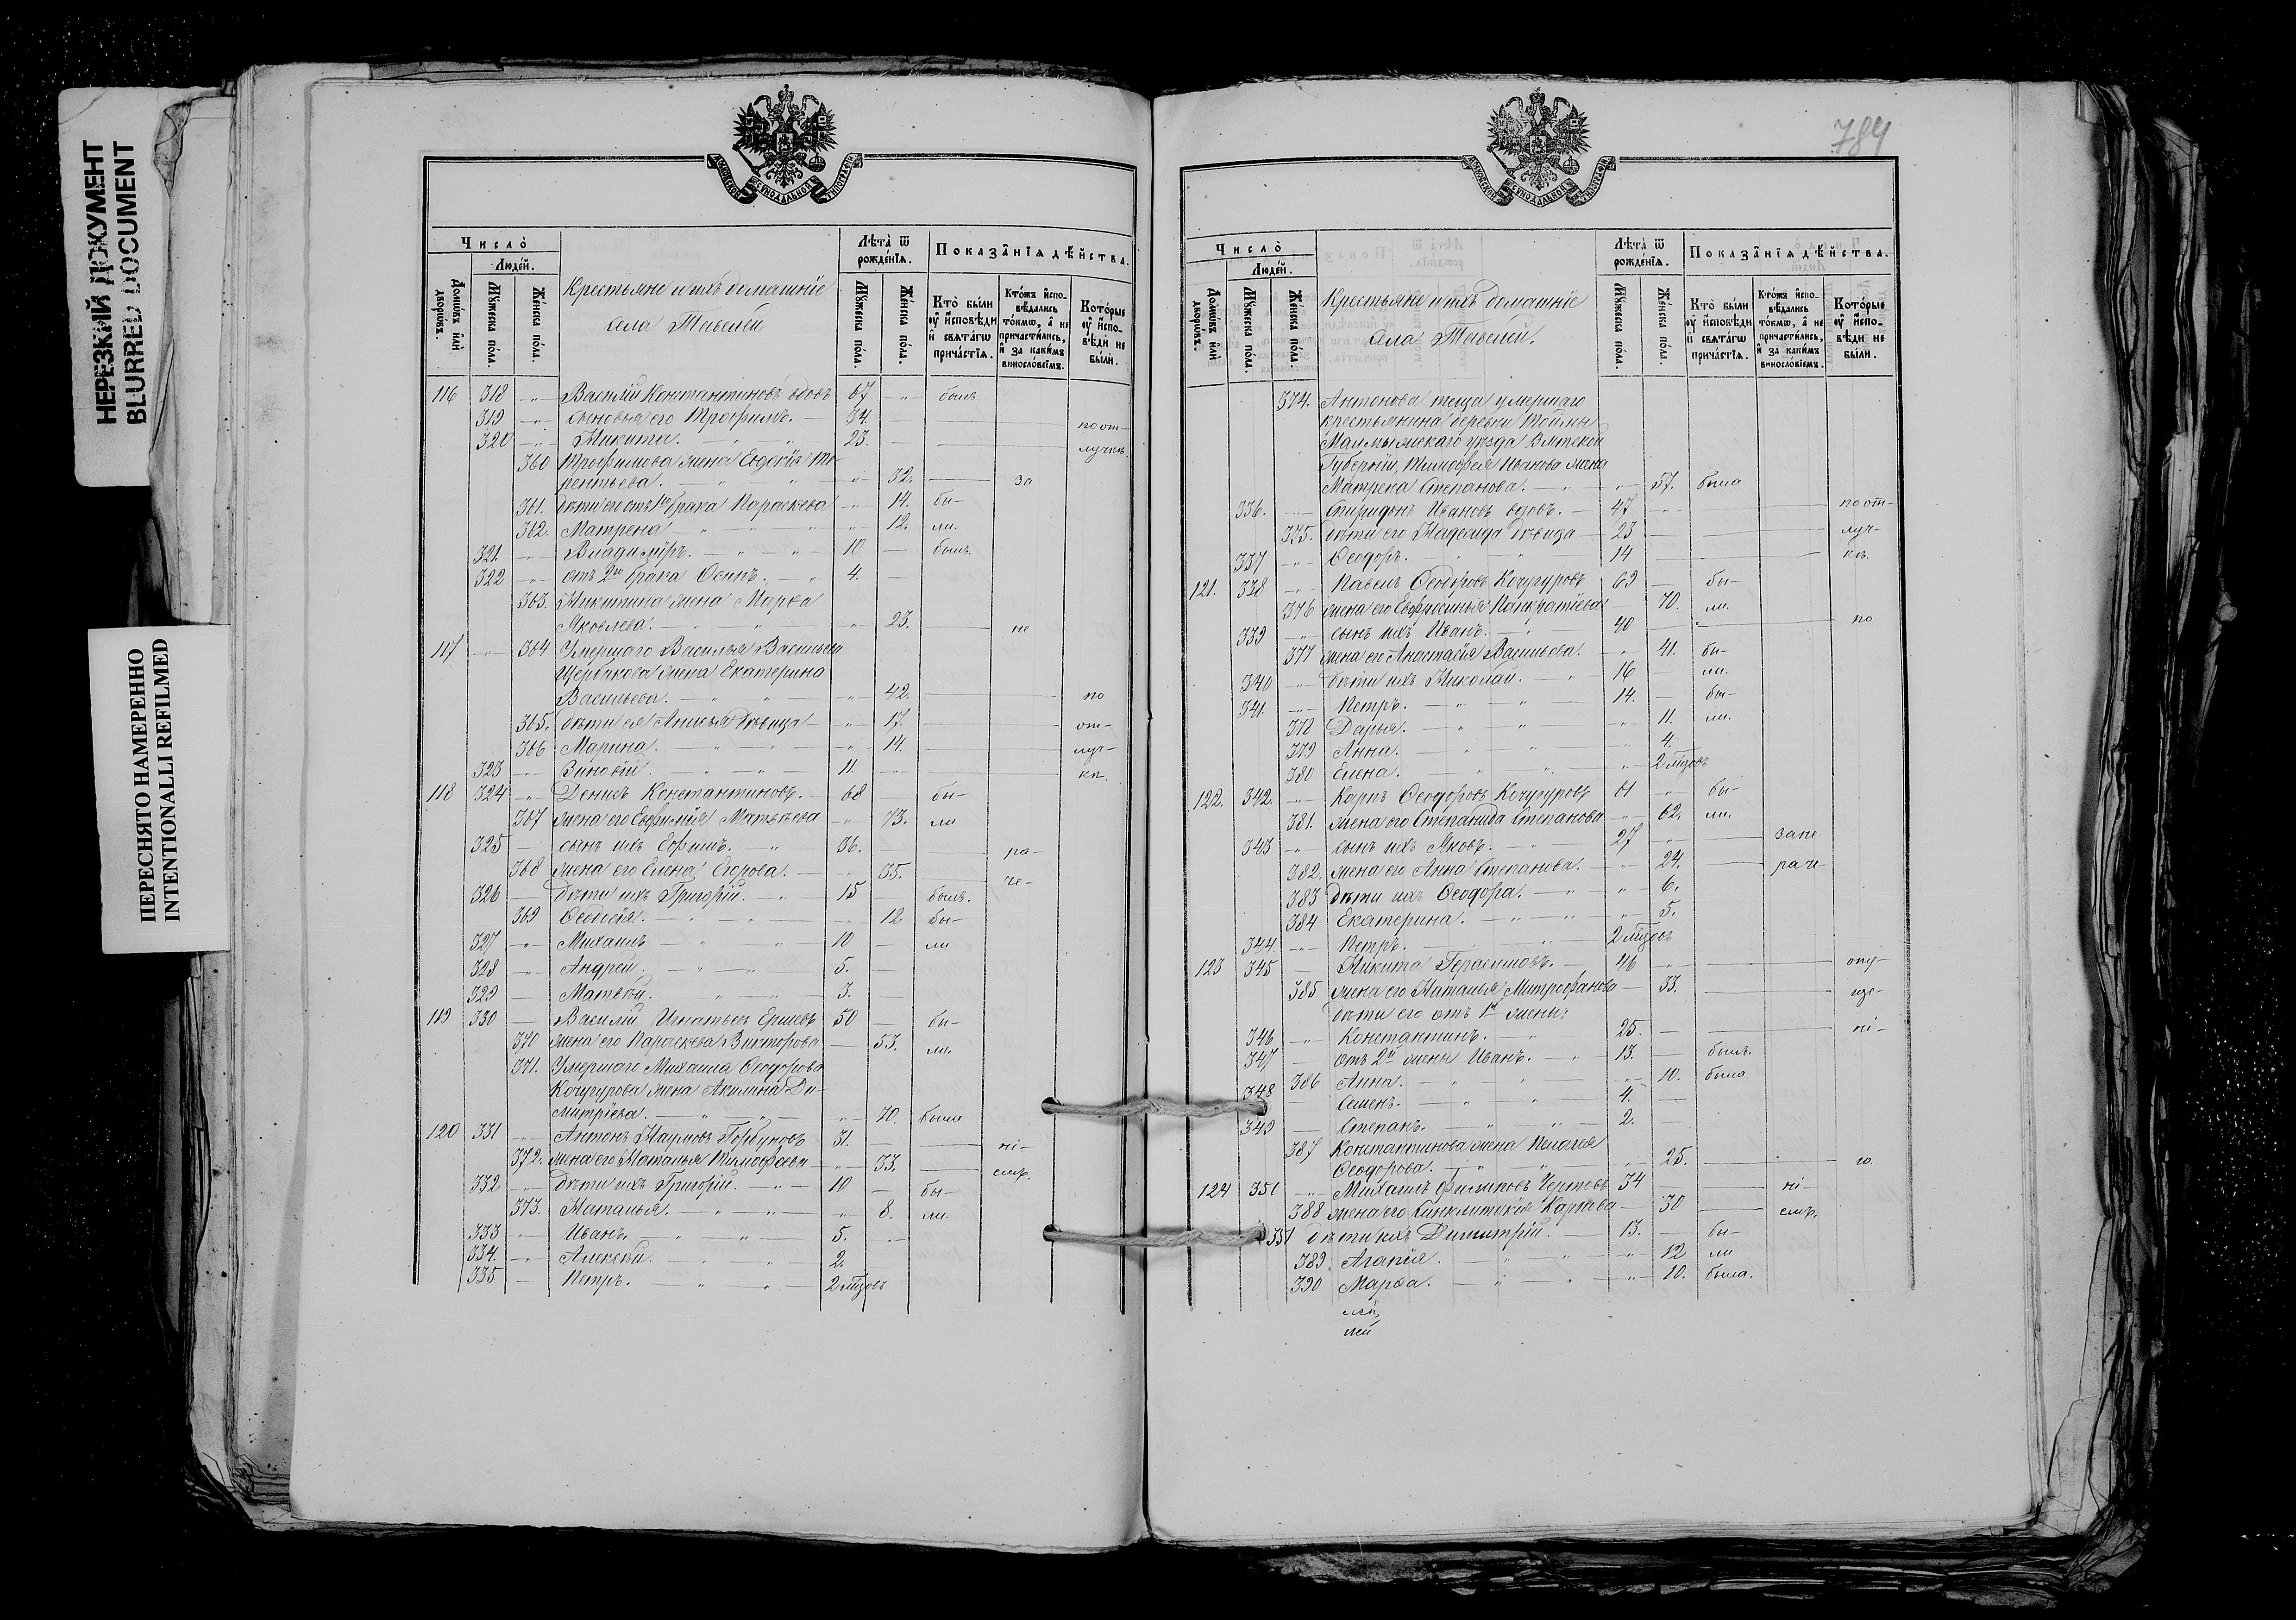 НЕРЕЗКИЙ ДОКУМЕНТ
BLURRED DOCUMENT
ПЕРЕСНЯТО НАМЕРЕННО
INTENTIONALLI REFILMED
МОСКОВСКОЙ СѴНОДАЛЬНОЙ ТИПОГРАФІИ
Число̀
Людéй.
Домѡ́въ и҆лѝ дворѡ́въ.
Мꙋ́жеска по́ла.
Же́нска по́ла.
Крестьяне и ихъ домашніе
села Тавелей
Лѣта̀ ѿ рожде́нїѧ.
Мꙋ́жеска по́ла.
Же́нска по́ла.
Показа̑нїѧ дѣ́йства.
Кто̀ бы́ли ᲂу҆ и҆сповѣ́ди и҆ свѧта́гѡ прича́стїѧ.
Кто́жъ и҆сповѣ́дались то́кмѡ, а҆ не причасти́лись, и҆ за каки́мъ винословїемъ.
Кото́рые ᲂу҆ и҆сповѣ́ди не бы́ли.
116 318 -"- Василій Константиновъ вдовъ 67 -"- былъ
319 -"- сыновья его Трофимъ. 34. по от-
320 -"- Никита. 23. лучкѣ.
360 Трофимова жена Евдокія Те-
рентьева. 32. за
361. дѣти его отъ 1го брака Параскева 14. бы-
362. Матрена 12. ли.
321. -"- Владиміръ. 10 былъ
322 -"- отъ 2го брака Осипъ. 4.
363. Никитина жена Марѳа
Яковлева. 23. не
117 364 Умершаго Василья Васильева
Щербакова жена Екатерина
Васильева. 42. по
365. дѣти ея Анисья дѣвица 17. от-
366 Марина. 14. луч-
323 -"- Зиновій. 11. кѣ.
118 324 -"- Денисъ Константиновъ. 68 бы-
367 жена его Евфимія Матвѣева 73. ли
325 сынъ ихъ Ефимъ. 36. ра-
368 жена его Елена Егорова. 35. че-
326 дѣти ихъ Григорій. 15 былъ.
369 Ѳеодосія. 12 бы-
327 -"- Михаилъ 10 ли
328 -"- Андрей. 5.
329 Матвѣй. 3.
119 330 Василій Игнатьевъ Ершевъ 50 бы-
370 жена его Параскева Викторова 53. ли.
371. Умершаго Михаила Ѳеодорова
Кочугурова жена Акилина Ди-
митріева. 70. была
120 331 -"- Антонъ Наумовъ Горбуновъ 31. ні-
372. жена его Наталья Тимофеева 33. емъ.
332 -"- дѣти ихъ Григорій. 10 бы-
373. Наталья. 8. ли.
333 -"- Иванъ. 5.
334. -"- Алексѣй. 2.
335 Петръ. 2 мѣсѧцъ
784
МОСКОВСКОЙ СѴНОДАЛЬНОЙ ТИПОГРАФІИ
Число̀
Людéй.
Домѡ́въ и҆лѝ дворѡ́въ.
Мꙋ́жеска по́ла.
Же́нска по́ла.
Крестьяне и ихъ домашніе
села Тавелей.
Лѣта̀ ѿ рожде́нїѧ.
Мꙋ́жеска по́ла.
Же́нска по́ла.
Показа̑нїѧ дѣ́йства.
Кто̀ бы́ли ᲂу҆ и҆сповѣ́ди и҆ свѧта́гѡ прича́стїѧ.
Кто́жъ и҆сповѣ́дались то́кмѡ, а҆ не причасти́лись, и҆ за каки́мъ винословїемъ.
Кото́рые ᲂу҆ и҆сповѣ́ди не бы́ли.
374. Антонова теща умершаго
крестьянина деревни Тоймы
Малмыжскаго уѣзда Вятской
Губерніи, Тимофея Иванова жена
Матрена Степанова. 57. была
336. Спиридонъ Ивановъ вдовъ. 47 по от-
375. дѣти его Надежда дѣвица 23 луч-
337 -"- Ѳеодоръ. 14 кѣ.
121. 338 -"- Павелъ Ѳеодоровъ Кочугуровъ 69 бы-
376 жена его Евфросинья Панкратіева 70. ли.
339 -"- сынъ ихъ Иванъ. 40 по
377 жена его Анастасія Васильева. 41. бы-
340 -"- дѣти ихъ Николай. 16 ли.
341. -"- Петръ. 14. бы-
378 Дарья. 11. ли.
379 Анна. 4.
380 Елена. 2 мѣсѧцъ
122. 342. -"- Карпъ Ѳеодоровъ Кочугуровъ 61 бы-
381. жена его Степанида Степанова 62. ли.
343 -"- сынъ ихъ Яковъ. 27 за не
382. жена его Анна Степанова. 24. раче-
383 дѣти ихъ Ѳеодора. 6.
384 Екатерина. 5.
344 -"- Петръ. 2 мѣсѧцъ
123 345 Никита Герасимовъ. 46 опу-
385 жена его Наталья Митрофанова 33. ще-
дѣти его отъ 1й жены:
346 -"- Константинъ. 25. ні-
347 отъ 2й жены Иванъ. 13. былъ.
386 Анна. 10. была
348 Семенъ. 4.
349 Степанъ. 2.
387 Константинова жена Пелагія
Ѳеодорова. 25. ю.
124 351 -"- Михаилъ Филиповъ Чертовъ 34 ні-
388 жена его Синклитикія Карпова 30 емъ.
351 дѣти ихъ Димитрій. 13. бы-
389. Агапія. 12 ли
390 Марѳа. 10. была.